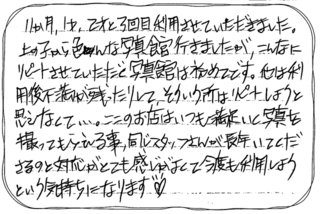 11か月、1才、てすと3回目利用させていただきました。
上の子から色んな写真館行きましたが、こんなに
リピートさせていただく写真館は初めてです。他は利
用後不満が残ったりして、そういう所はリピートしようと
思えなくて…。ここのお店はいつも満足いく写真を
撮ってもらえる事、同じスタッフさんが長年いてくださ
るのと対応がとても感じがよくて今度も利用しよう
という気持ちになります♡